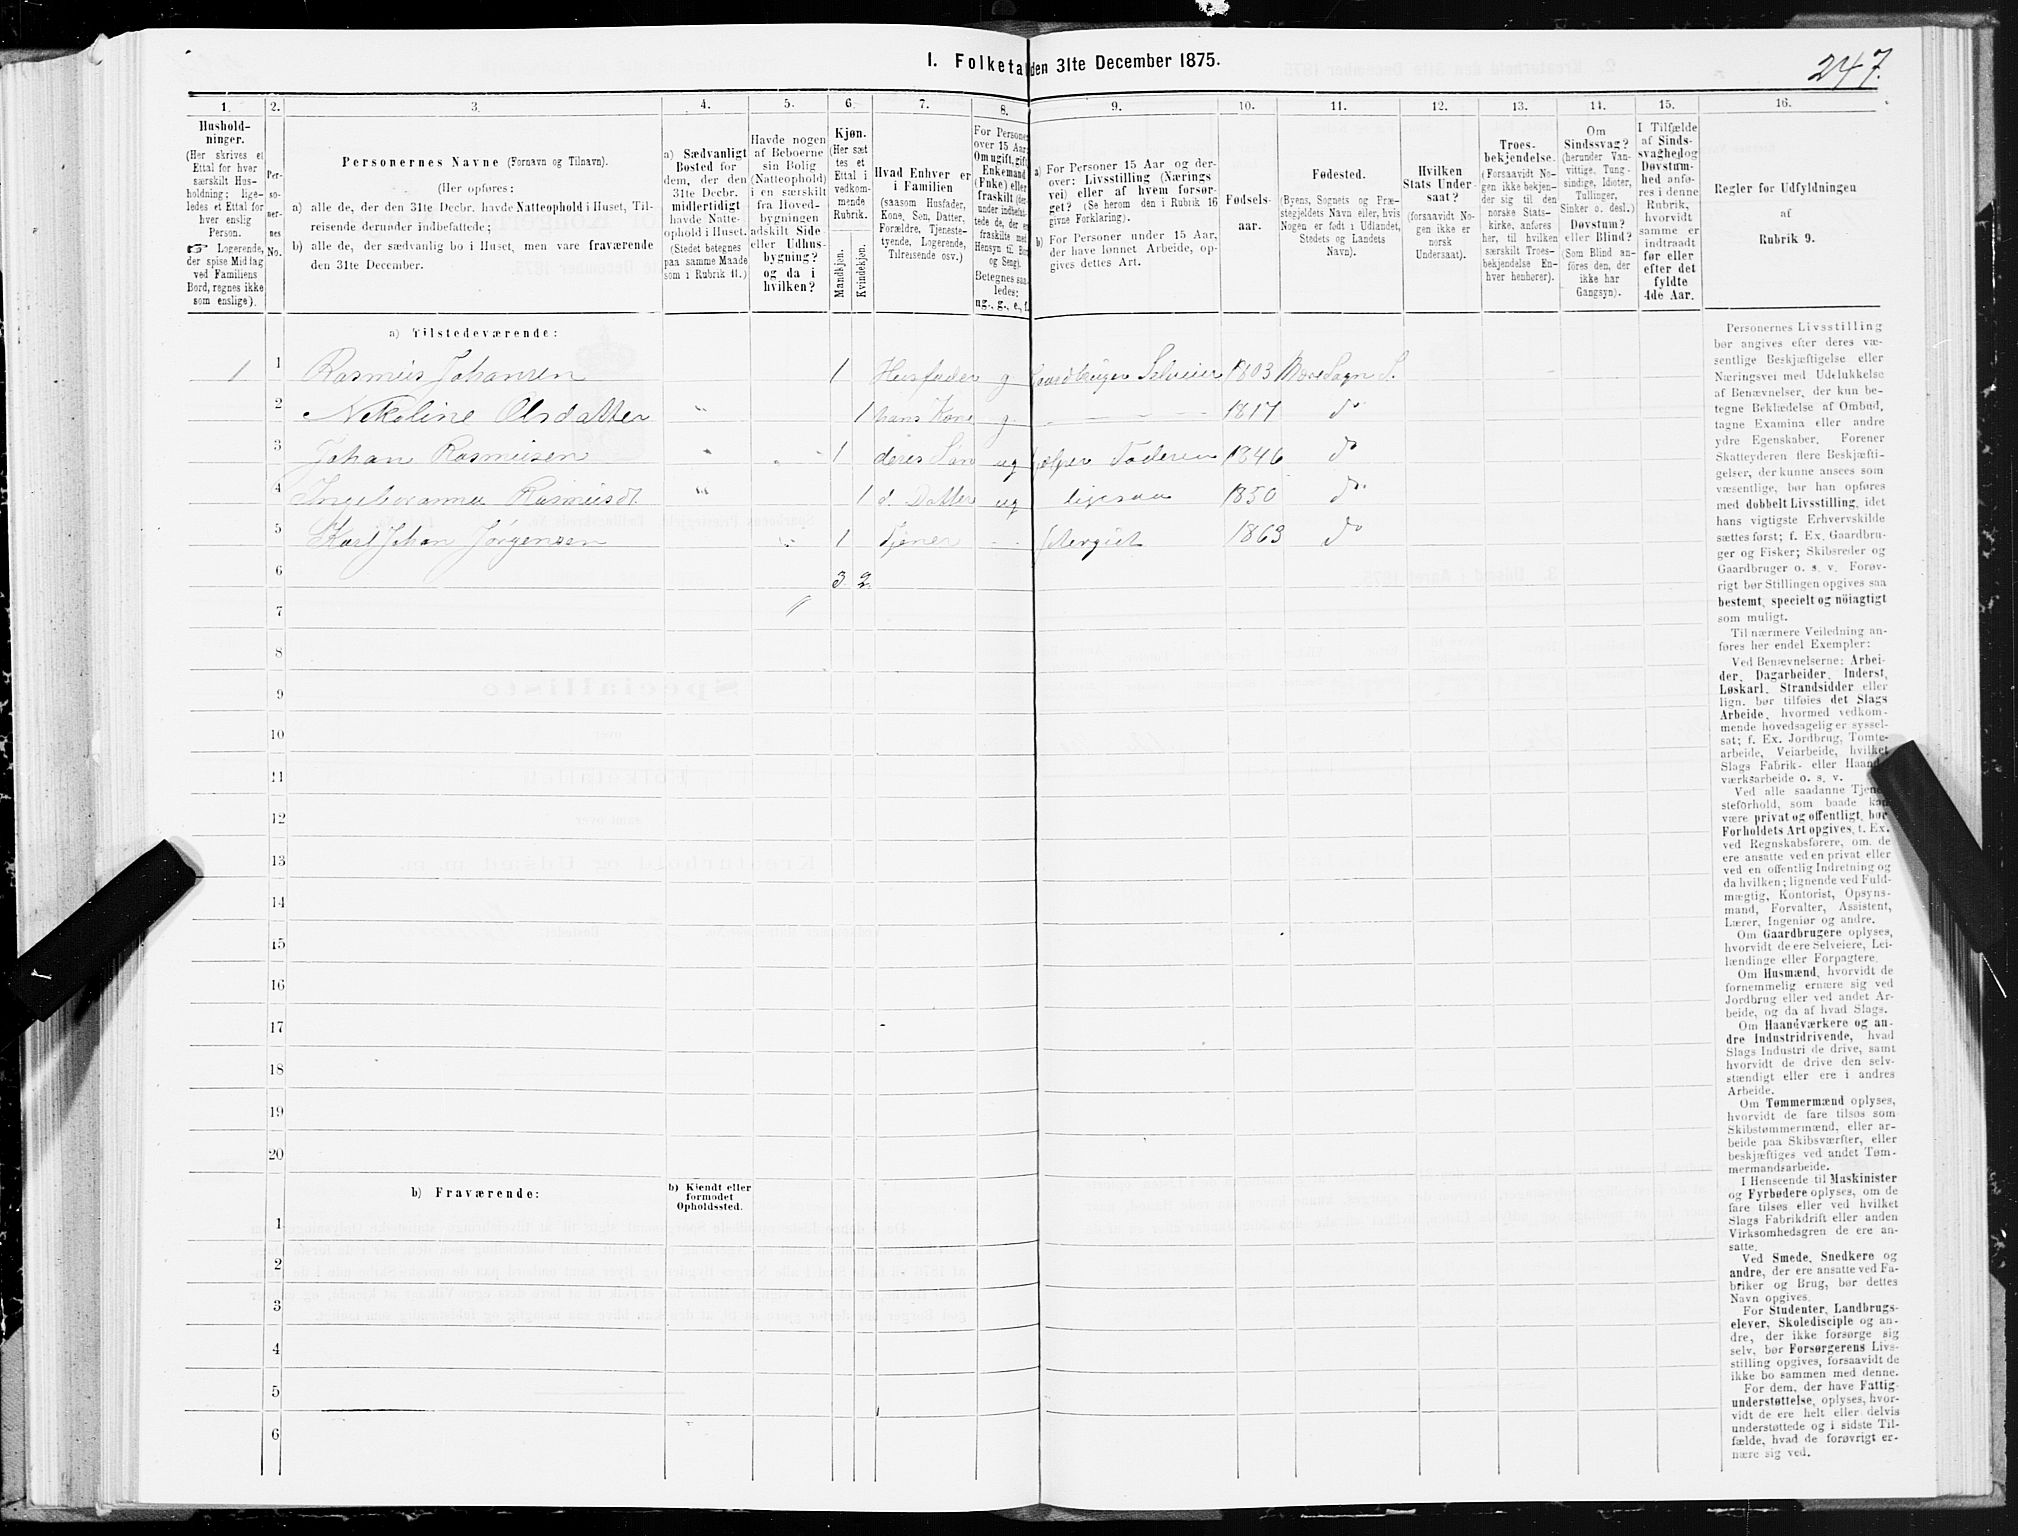 I. Folketal den 31te December 1875.
247.
1. 2. 3. 4. 5. 6. 7. 8. 9. 10. 11. 12. 13. 14. 15. 16.
Hushold-
ninger.
(Her skrives et
Ettal for hver
særskilt Hus-
holdning; lige-
ledes et Ettal for
hver enslig
Person.
☞ Logerende,
der spise Middag
ved Familiens
Bord, regnes ikke
som enslige).
Per-
so-
ner-
nes
No.
Personernes Navne (Fornavn og Tilnavn).
(Her opføres:
a) alle de, der den 31te Decbr. havde Natteophold i Huset, Til-
reisende derunder indbefattede;
b) alle de, der sædvanlig bo i Huset, men vare fraværende
den 31te December.
a) Sædvanligt
Bosted for
dem, der den
31te Decbr.
midlertidigt
havde Natte-
ophold i Huset.
(Stedet betegnes
paa samme Maade
som i Rubrik 11.)
Havde nogen
af Beboerne
sin Bolig
(Natteophold)
i en særskilt
fra Hoved-
bygningen
adskilt Side-
eller Udhus-
bygning?
og da i
hvilken?
Kjøn.
(Her sæt-
tes et
Ettal i
vedkom-
mende
Rubrik.
Mandkjøn.
Kvindekjøn.
Hvad Enhver er
i Familien
(saasom Husfader,
Kone, Søn, Datter,
Forældre, Tjeneste-
tyende, Logerende,
Tilreisende osv.)
For Personer
over 15 Aar:
Om ugift, gift,
Enkemand
(Enke) eller
fraskilt (der-
under indbefat-
tede de, der ere
fraskilte med
Hensyn til Bord
og Seng).
Betegnes saa-
ledes:
ug., g., e., f.
a) For Personer 15 Aar og der-
over: Livsstilling (Nærings-
vei) eller af hvem forsør-
get? (Se herom den i Rubrik 16
givne Forklaring).
b) For Personer under 15 Aar,
der have lønnet Arbeide, op-
gives dettes Art.
Fødsels-
aar.
Fødested.
(Byens, Sognets og Præ-
stegjeldets Navn eller, hvis
Nogen er født i Udlandet,
Stedets og Landets
Navn).
Hvilken
Stats Under-
saat?
(forsaavidt No-
gen ikke er
norsk
Undersaat).
Troes-
bekjendelse.
(Forsaavidt No-
gen ikke bekjen-
der sig til den
norske Stats-
kirke, anføres
her, til hvilken
særskilt Troes-
bekjendelse En-
hver henhører).
Om
Sindssvag?
(herunder Van-
vittige, Tung-
sindige, Idioter,
Tullinger,
Sinker o. desl.)
Døvstum?
eller Blind?
(Som Blind an-
føres den, der
ikke har
Gangsyn).
I Tilfælde
af Sinds-
svaghed og
Døvstum-
hed anfø-
res i denne
Rubrik,
hvorvidt
samme er
indtraadt
før eller
efter det
fyldte
4de Aar.
Regler for Udfyldningen
af
Rubrik 9.
a) Tilstedeværende:
1 1 Rasmus Johansen 1 Husfader g Gaardbruger Selveier 1803
2 Nekoline Olsdatter " 1 hans Kone g 1817 do
3 Johan Rasmusen " 1 deres Søn ug hjelper Faderen 1846 do
4 Ingeboranna Rasmusdt " 1 d. Datter ug ligesaa 1850 do
5 Karl Johan Jørgensen 1 Tjener 1863 do
6 3. 2.
7
8
9
10
11
12
13
14
15
16
17
18
19
20
b) Fraværende:
b) Kjendt eller
formodet
Opholdssted.
1
2
3
4
5
6
Personernes Livsstilling
bør angives efter deres væ-
sentlige Beskjæftigelse eller
Næringsvei med Udelukkelse
af Benævnelser, der kun be-
tegne Beklædelse af Ombud,
tagne Examina eller andre
ydre Egenskaber. Forener
Skatteyderen flere Beskjæfti-
gelser, der kunne ansees som
væsentlige, bør han opføres
med dobbelt Livsstilling, idet
hans vigtigste Erhvervskilde
sættes først; f. Ex. Gaardbru-
ger og Fisker; Skibsreder og
Gaardbruger o. s. v. Forøv-
rigt bør Stillingen opgives saa
bestemt, specielt og nöiagtigt
som muligt.
Til nærmere Veiledning an-
føres her endel Exempler:
Ved Benævnelserne: Arbei-
der, Dagarbeider, Inderst,
Løskarl, Strandsidder eller
lign. bør tilføies det Slags
Arbeide, hvormed vedkom-
mende hovedsagelig er syssel-
sat; f. Ex. Jordbrug, Tomte-
arbeide, Veiarbeide, hvilket
Slags Fabrik- eller Haand-
værksarbeide o. s. v.
Ved alle saadanne Tjene-
steforhold, som baade kan
være privat og offentligt, bør
Forholdets Art opgives, t. Ex.
ved Regnskabsførere, om de
ere ansatte ved en privat eller
ved en offentlig Indretning og
da hvilken; lignende ved Fuld-
mægtig, Kontorist, Opsyns-
mand, Forvalter, Assistent,
Lærer, Ingeniør og andre.
Om Gaardbrugere oplyses,
hvorvidt de ere Selveiere, Lei-
lændinge eller Forpagtere.
Om Husmænd, hvorvidt de
fornemmelig ernære sig ved
Jordbrug eller ved andet Ar-
beide, og da af hvad Slags.
Om Haandværkere og an-
dre Industridrivende, hvad
Slags Industri de drive, samt
hvorvidt de drive den selv-
stændigt eller ere i andres
Arbeide.
Om Tømmermænd oplyses,
hvorvidt de fare tilsøs som
Skibstømmermænd, eller ar-
beide paa Skibsværfter, eller
beskjæftiges ved andet Tøm-
mermandsarbeide.
I Henseende til Maskinister
og Fyrbødere oplyses, om de
fare tilsøs eller ved hvilket
Slags Fabrikdrift eller anden
Virksomhedsgren de ere an-
satte.
Ved Smede, Snedkere og
andre, der ere ansatte ved Fa-
briker og Brug, bør dettes
Navn opgives.
For Studenter, Landbrugs-
elever, Skoledisciple og an-
dre, der ikke forsørge sig
selv, bør Forsørgerens Livs-
stilling opgives, forsaavidt de
ikke bo sammen med denne.
For dem, der have Fattig-
understøttelse, oplyses, hvor-
vidt de ere helt eller delvis
understøttede og i sidste Til-
fælde, hvad de forøvrigt er-
nære sig ved.